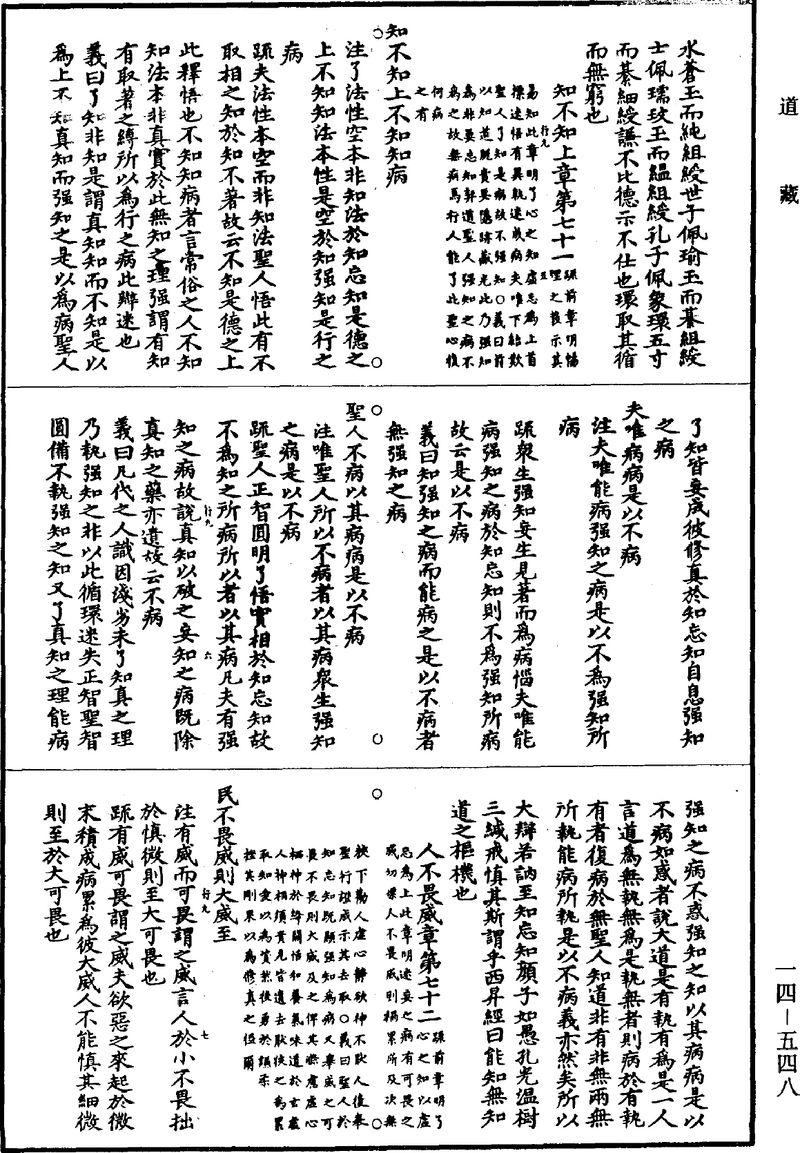 道藏
水蒼玉而純組綬世子佩瑜玉而綦組綬
士佩瓀玟玉而縕組綬孔子佩象環五寸
而綦組綬謙不比德示不仕也環取其循
而無窮也
知不知上章第七十一
知不知上不知知病
注了法性空本非知法於知忘知是德之
上不知知法本性是空於知強知是行之
病
疏夫法性本空而非知法聖人悟此有不
取相之知於知不著故云不知是德之上
此釋悟也不知知病者言常俗之人不知
知法本非真實於此無知之理強謂有知
有取著之縛所以為行之病此辯迷也
義曰了知非知是謂真知知而不知是以
為上不知真知而強知之是以為病聖人
了知皆妄歲彼修真於知忘知自息強知
之病
夫唯病病是以不病
注夫唯能病強知之病是以不為強知所
病
疏眾生強知妄生見著而為病惱夫唯能
病強知之病於知忘知則不為強知所病
故云是以不病
義曰知強知之病而能病之是以不病者
無強知之病
聖人不病以其病病是以不病
注唯聖人所以不病者以其病眾生強知
之病是以不病
疏聖人正智圓明了悟實相於知忘知故
不為知之所病所以者以其病凡夫有強
知之病故說真知以破之妄知之病既除
真知之藥亦遣故云不病
義曰凡代之人識因淺劣未了知真之理
乃執強知之非以此循環迷失正智聖智
圓備不執強知之知又了真知之理能病
強知之病不惑強知之知以其病病是以
不病如惑者說大道是有執有為是一人
言道為無執無為是執無者則病於有執
有者復病於無聖人知道非有非無兩無
所執能病所執是以不病義亦然矣所以
大辯若訥至知忘知顏子如愚孔光溫樹
三緘戒慎其斯謂乎西昇經曰能知無知
道之樞機也
人不畏威章第七十二
民不畏威則大威至
注有威而可畏謂之威言人於小不畏拙
於慎微則至大可畏也
疏有威可畏謂之威夫欲惡之來起於微
末積成病累為彼大威人不能慎其細微
則至於大可畏也
一四—五四八